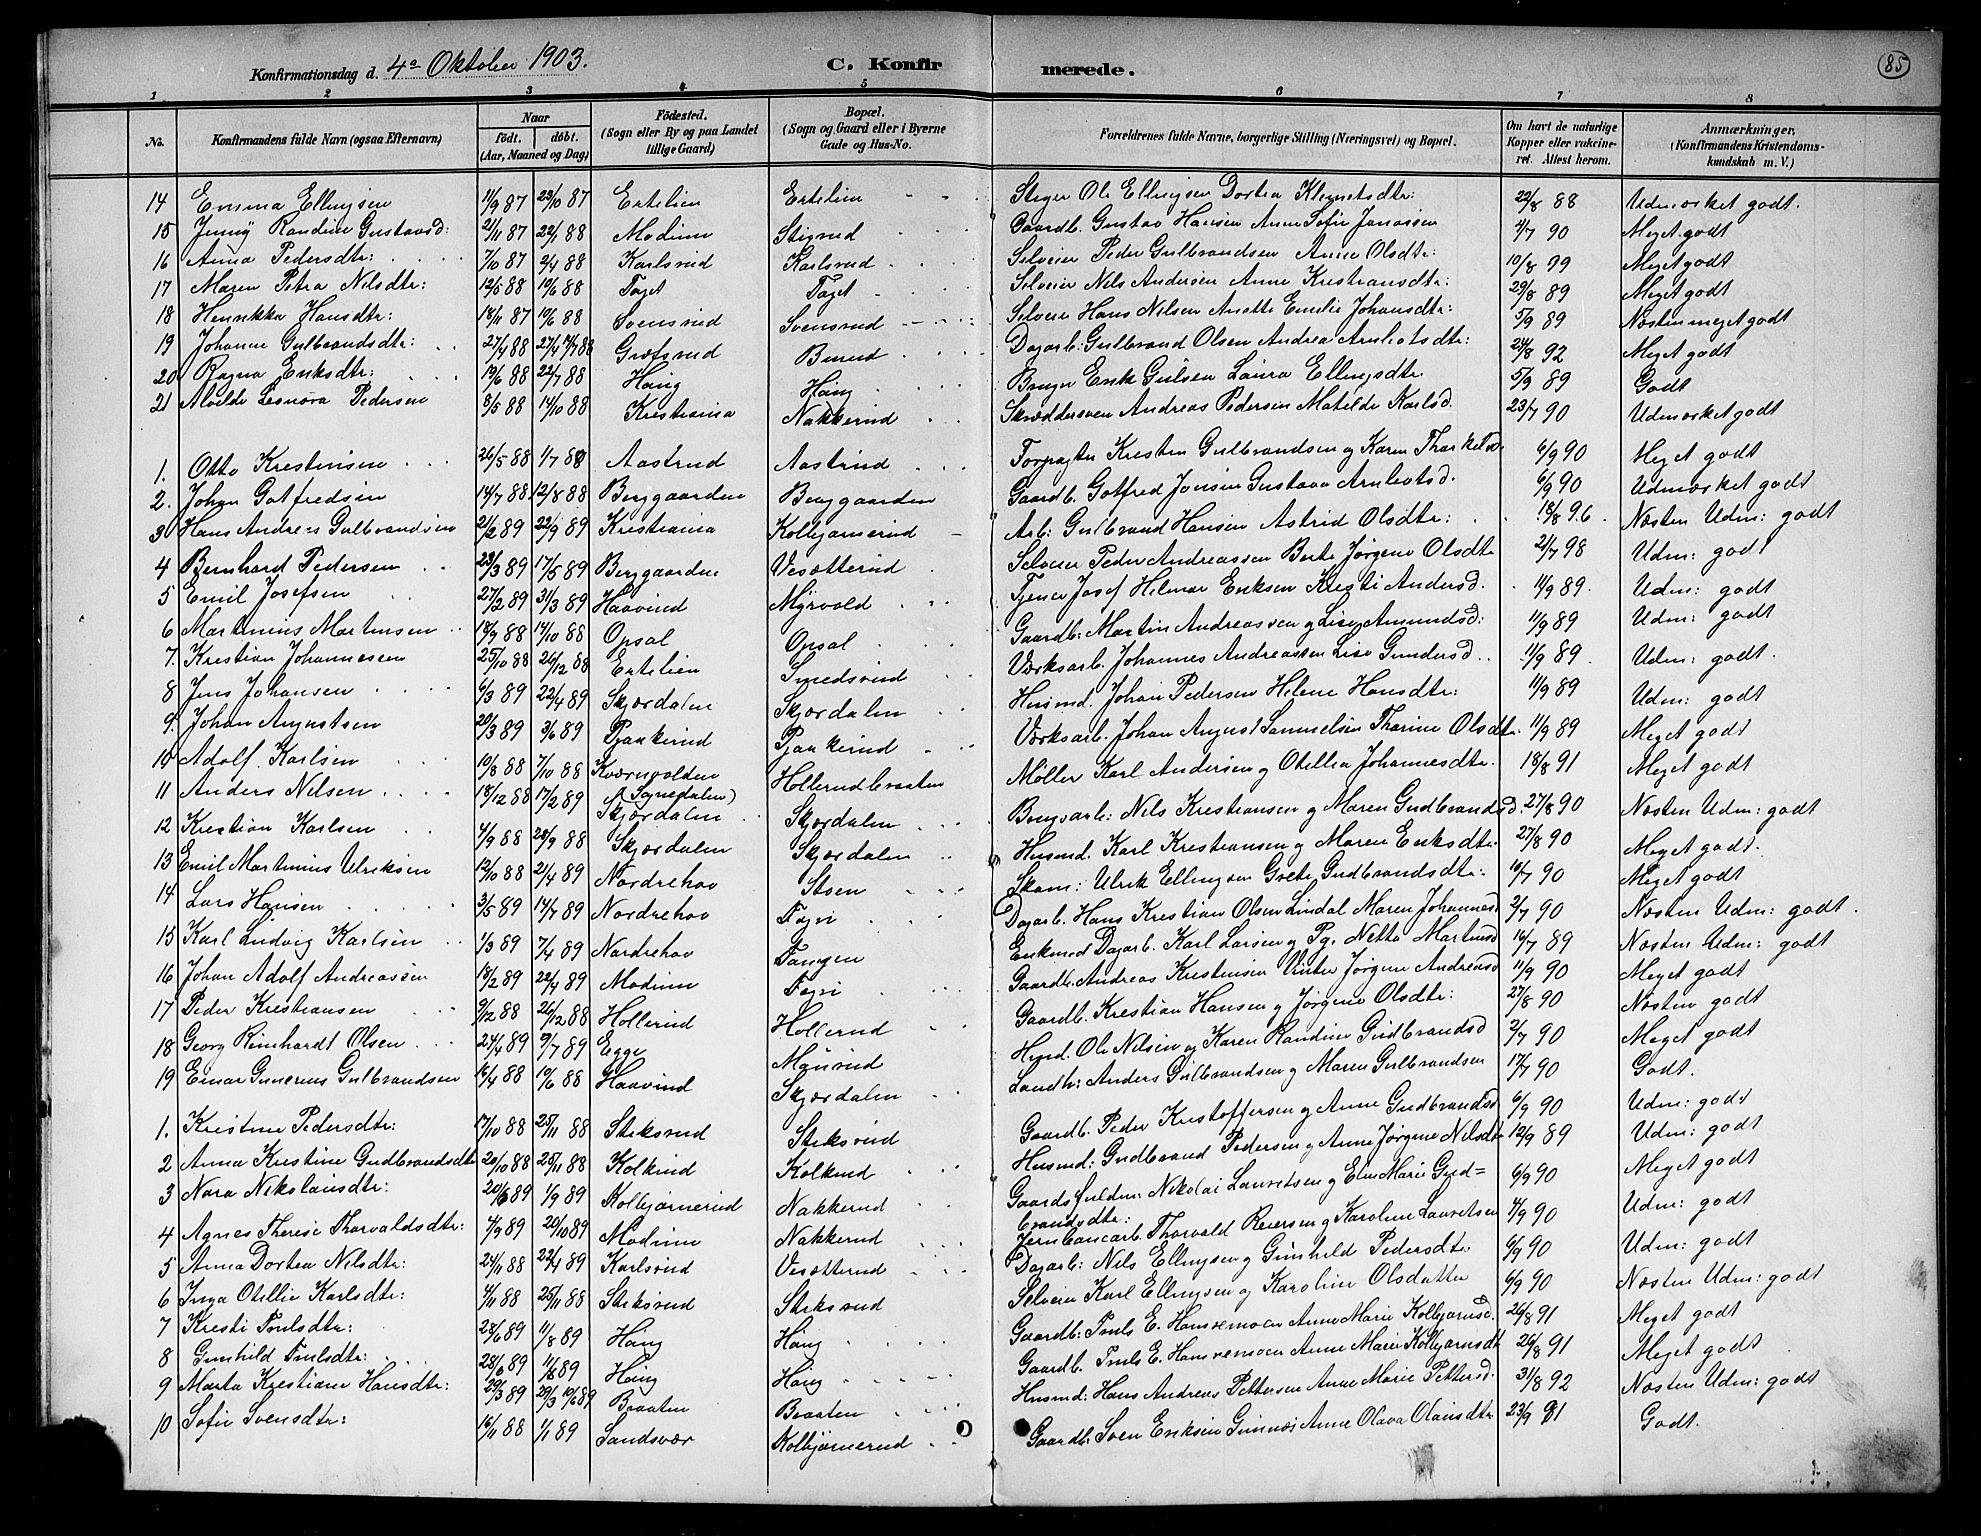 Konfirmationsdag d. 4de Oktober 1903. C. Konfir merede. 85
1 2 3 4 5 6 7 8
No. Konfirmandens fulde Navn (ogsaa Efternavn) Naar födt. döbt. (Aar, Maaned og Dag) Födested. (Sogn eller By og paa Landet tillige Gaard) Bopæl. (Sogn og Gaard eller i Byerne Gade og Hus-No. Forældrenes fulde Navne, borgerlige Stilling (Næringsvei) og Bopæl. Om havt de naturlige Kopper eller vakcineret. Attest herom. Anmærkninger, (Konfirmandens Kristendomskundskab m. V.)
14 Emma Ellingsen 11/9 87 23/10 87 Ertelien Ertelien Steger Ole Ellingsen Dortea Klemetsdtr: 22/8 88 Udmærket godt.
15 Jenny Randine Gustavsd: 21/11 87 22/1 88 Modum Stigrud Gaardb. Gustav Hansen Anne Sofie Jonassen 2/7 90 Meget godt
16 Anna Pedersdtr: 7/10 87 2/4 88 Karlsrud Karlsrud Selveier Peder Gulbrandsen Anne Olsdtr: 10/8 99 Meget godt
17 Maren Petra Nilsdtr: 12/5 88 10/6 88 Taget Taget Selveier Nils Andersen Anne Kristiansdtr: 29/8 89 Meget godt
18 Henrikka Hansdtr: 18/11 87 10/6 88 Svensrud Svensrud Selveier Hans Nilsen Anette Emilie Johansdtr: 5/9 89 Næsten meget godt
19 Johanne Gulbrandsdtr: 27/4 88 27/4 7/7 88 Græfsrud Burud Dagarb: Gulbrand Olsen Andrea Arnbotsdtr: 24/8 92 Meget godt
20 Ragna Eriksdtr: 19/6 88 22/7 88 Haug Haug Bruger Erik Gulsen Laura Ellingsdtr. 5/9 89 Godt
21 Alvilde Leonora Pedersen 8/5 88 14/10 88 Kristiania Nakkerud Skræddersven Andreas Pedersen Matilde Karlsd. 23/7 90 Udmærket godt
1. Otto Kristensen 26/5 88 1/7 88 Aastrud Aastrud Forpagter Kristen Gulbrandsen og Karen Tharkelsd. 6/9 90 Meget godt
2. Johan Gotfredsen 14/7 88 12/8 88 Berggaarden Berggaarden Gaardb. Gotfred Jonsen Gustava Arnbotsd. 6/9 90 Udmærket godt
3 Hans Andreas Gulbrandsen 21/2 89 22/9 89 Kristiania Kolbjørnerud Arb: Gulbrand Hansen Astrid Olsdtr: 18/8 96. Næsten Udm: godt
4 Bernhard Pedersen 23/3 89 17/5 89 Berggaarden Vesætterud Selveier Peder Andreassen Berte Jørgine Olsdtr 21/7 98 Udm: godt
5 Emil Josefsen 27/2 89 31/3 89 Haavind Myrvold Tjener Josef Hilmar Eriksen Kristi Andersd. 11/9 89. Udm: godt
6 Martinius Martinsen 18/9 88 14/10 88 Opsal Opsal Gaardb: Martin Andreassen og Lise Amundsd: 11/9 89 Udm: godt
7. Kristian Johannesen 25/10 88 26/12 88 Ertelien Smedsrud Værksarb. Johannes Andreassen Lise Gundersd. 11/9 89. Udm: godt.
8 Jens Johansen 6/3 89 22/4 89 Skjærdalen Skjærdalen Husmd. Johan Pedersen Helene Hansdtr: 11/9 89 Udm: godt
9. Johan Augustsen 20/3 89 3/6 89 Pjaakerud Pjaakerud Værksarb. Johan August Samuelsen Tharine Olsdtr. 11/9 89 Meget godt
10 Adolf Karlsen 10/8 88 7/10 88 Kværnvolden (Sognedalen) Hollerudbraaten Møller Karl Andersen og Otellia Johannesdtr. 18/8 91 Meget godt
11 Anders Nilsen 18/12 88 17/2 89 Skjærdalen Skjærdalen Brugsarb: Nils Kristiansen og Maren Gudbrandsd. 27/8 90 Næsten Udm: godt
12 Kristian Karlsen 4/9 88 20/9 88 Skjærdalen Skjærdalen Husmd. Karl Kristiansen og Maren Eriksdtr. 27/8 90 Meget godt.
13 Emil Martinius Ulriksen 12/10 88 21/4 89 Nordrehov Steen Skom: Ulrik Ellingsen Grete Gudbrandsdtr: 16/7 90 Meget godt
14 Lars Hansen 3/5 89 14/7 89 Nordrehov Fagri Dagarb. Hans Kristian Olsen Lindal Maren Johannesd. 2/7 90 Næsten Udm: godt.
15 Karl Ludvig Karlsen 1/3 89 7/4 89 Nordrehov Tangen Enkemd Dagarb. Karl Larsen og Pg. Netta Martinsd 16/7 89 Næsten Udm: godt
16 Johan Adolf Andreassen 18/2 89 22/4 89 Modum Fagri Gaardb. Andreas Kristensen Vinter Jørgine Andreasd 11/9 90 Meget godt
17 Peder Kristiansen 9/12 88 26/12 88 Hollerud Hollerud Gaardb. Kristian Hansen og Jørgine Olsdtr: 27/8 90 Næsten godt
18 Georg Reinhardt Olsen 24/4 89 9/7 89 Egge Mourud Husmd. Ole Nilsen og Karen Randine Gudbrandsd 2/7 90 Meget godt
19 Einar Gunerius Gulbrandsen 16/4 88 10/6 88 Haavind Skjærdalen Landh: Anders Gulbrandsen og Maren Gulbrandsen 17/7 90 Godt.
1. Kristine Pedersdtr: 17/10 88 25/11 88 Stiksrud Stiksrud Gaardb. Peder Kristoffersen og Anne Gudbrandsd. 6/9 90 Udm: godt
2 Anna Kristine Gudbrandsdtr 20/10 88 25/11 88 Kolkind Kolkind Husmd: Gudbrand Pedersen og Anne Jørgine Nilsdtr 12/9 89 Udm: godt
3 Nora Nikolaisdtr: 20/6 89 1/9 89 Kolbjørnerud Nakkerud Gaardsfuldm: Nikolai Lauretsen og Elen Marie Gud=
brandsdtr: 6/9 90 Meget godt
4 Agnes Therese Thorvaldsdtr: 4/9 89 20/10 89 Modum Nakkerud Jernbanearb. Thorvald Reiersen og Karoline Lauretsen 4/9 90 Udm: godt
5 Anna Dortea Nilsdtr: 24/11 88 22/4 89 Karlsrud Vesætterud Dagarb: Nils Ellingsen og Gunhild Pedersdtr 6/9 90 Udm: godt
6 Inga Otellie Karlsdtr: 4/11 88 25/11 88 Stiksrud Stiksrud Selveier Karl Ellingsen og Karoline Olsdatter 6/9 90 Næsten Udm: godt
7 Kristi Trulsdtr: 28/6 89 11/8 89 Haug Haug Gaardb: Truls E. Hansemoen Anne Marie Kolbjørnsd. 26/8 91 Meget godt
8 Gunhild Trulsdtr: 28/6 89 11/8 89 Haug Haug Gaardb. Truls E. Hansemoen Anne Marie Kolbjørnsdt 26/8 91 Meget godt
9 Marta Kristiane Hansdtr: 29/3 89 29/3 10/6 89 Braaten Braaten Husmd: Hans Andreas Pettersen Anne Marie Pettersd. 31/8 92 Næsten Udm: godt
10 Sofie Svensdtr: 16/11 88 1/1 89 Sandsvær Kolbjørnerud Gaardb. Sven Eriksen Gunnes Anne Olava Olausdtr 23/9 91 Godt.